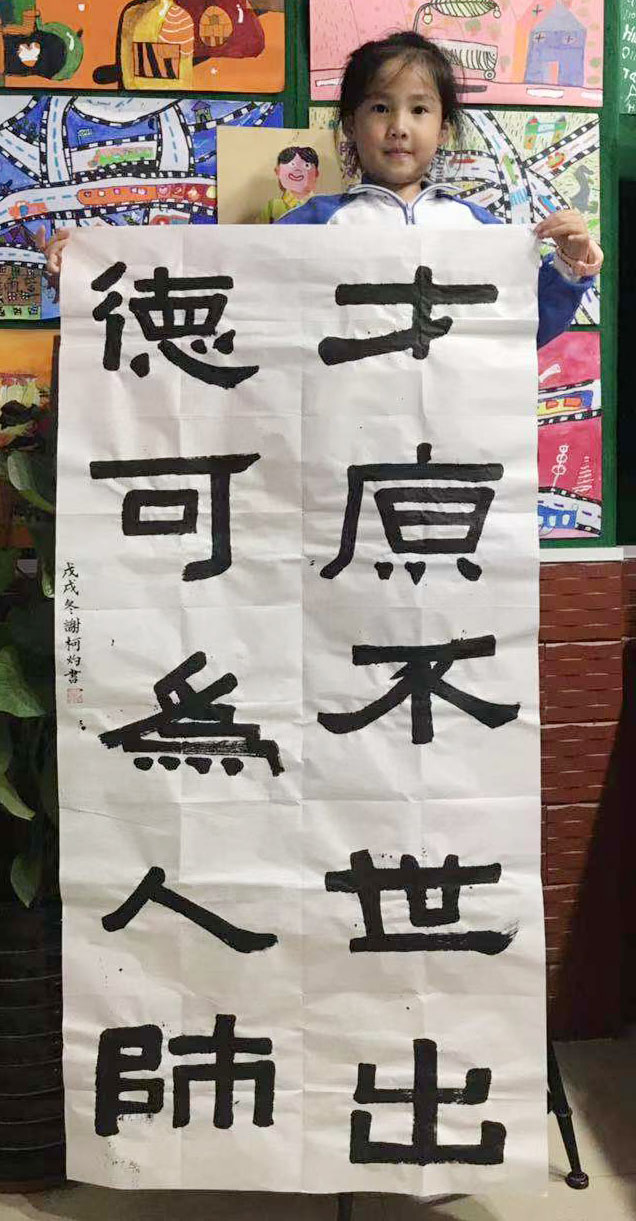 才原不世出
德可為人師
戊戌冬謝柯灼書